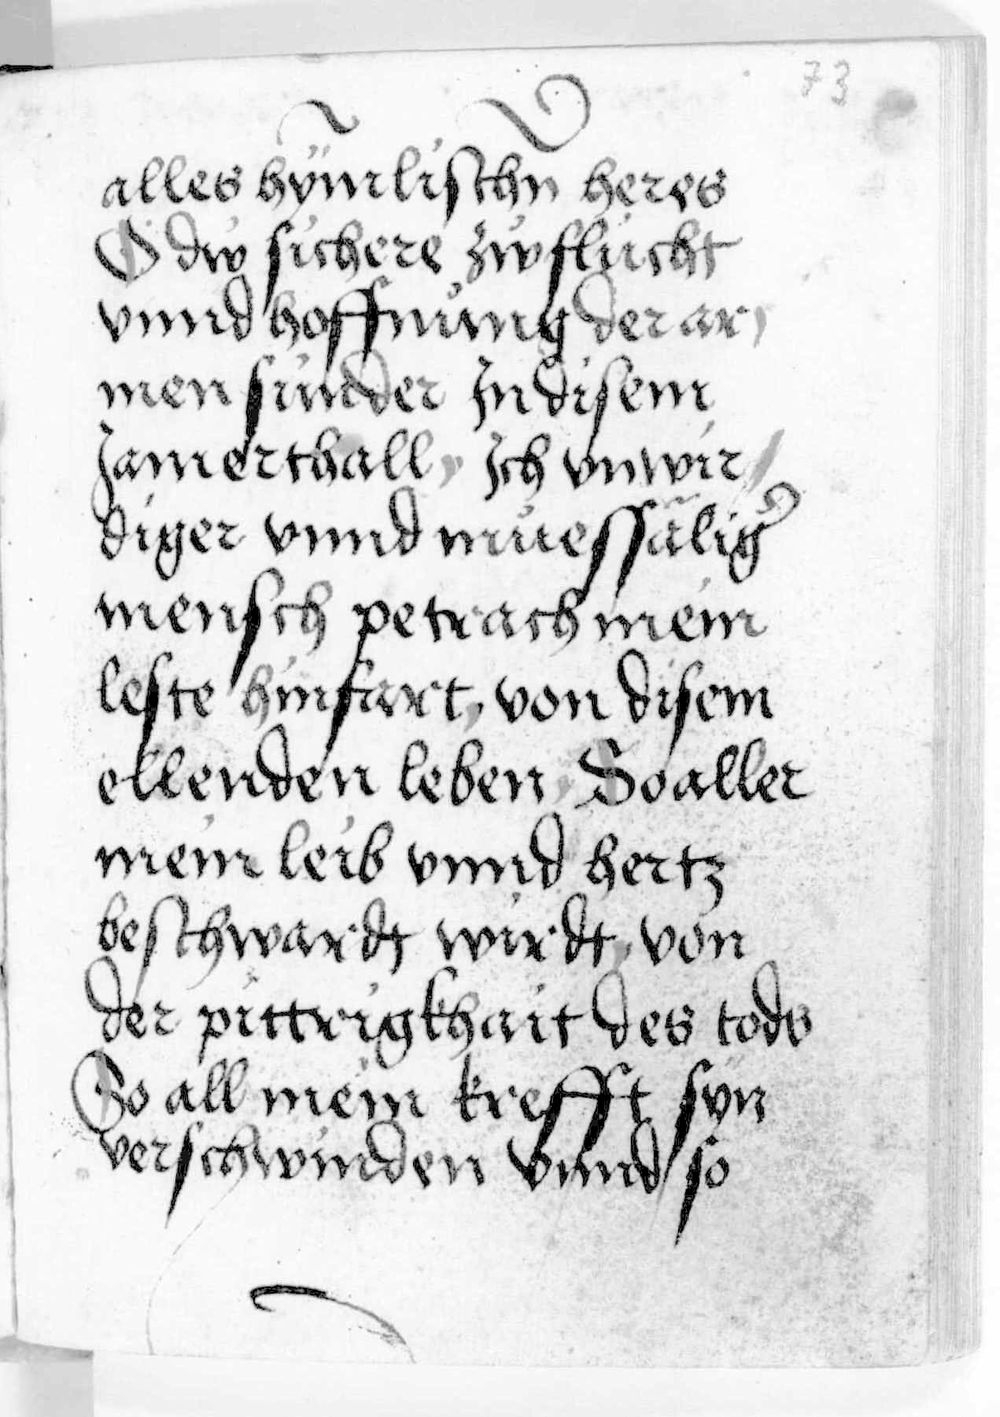 73
alles hÿmlischn heres
O dw sichere zwflucht
vnnd hoffnůng der ar/
men sünder Jn disem
Jamerthall, Jch vnwir/
diger vnnd müessälig̕
mensch petrach mein
leste hinfart, von disem
ellenden leben, So aller
mein leib vnnd hertz
beschwardt wirdt, von
der pittrigkhait des tods
So all mein krefft syn
verschwinden vnnd so